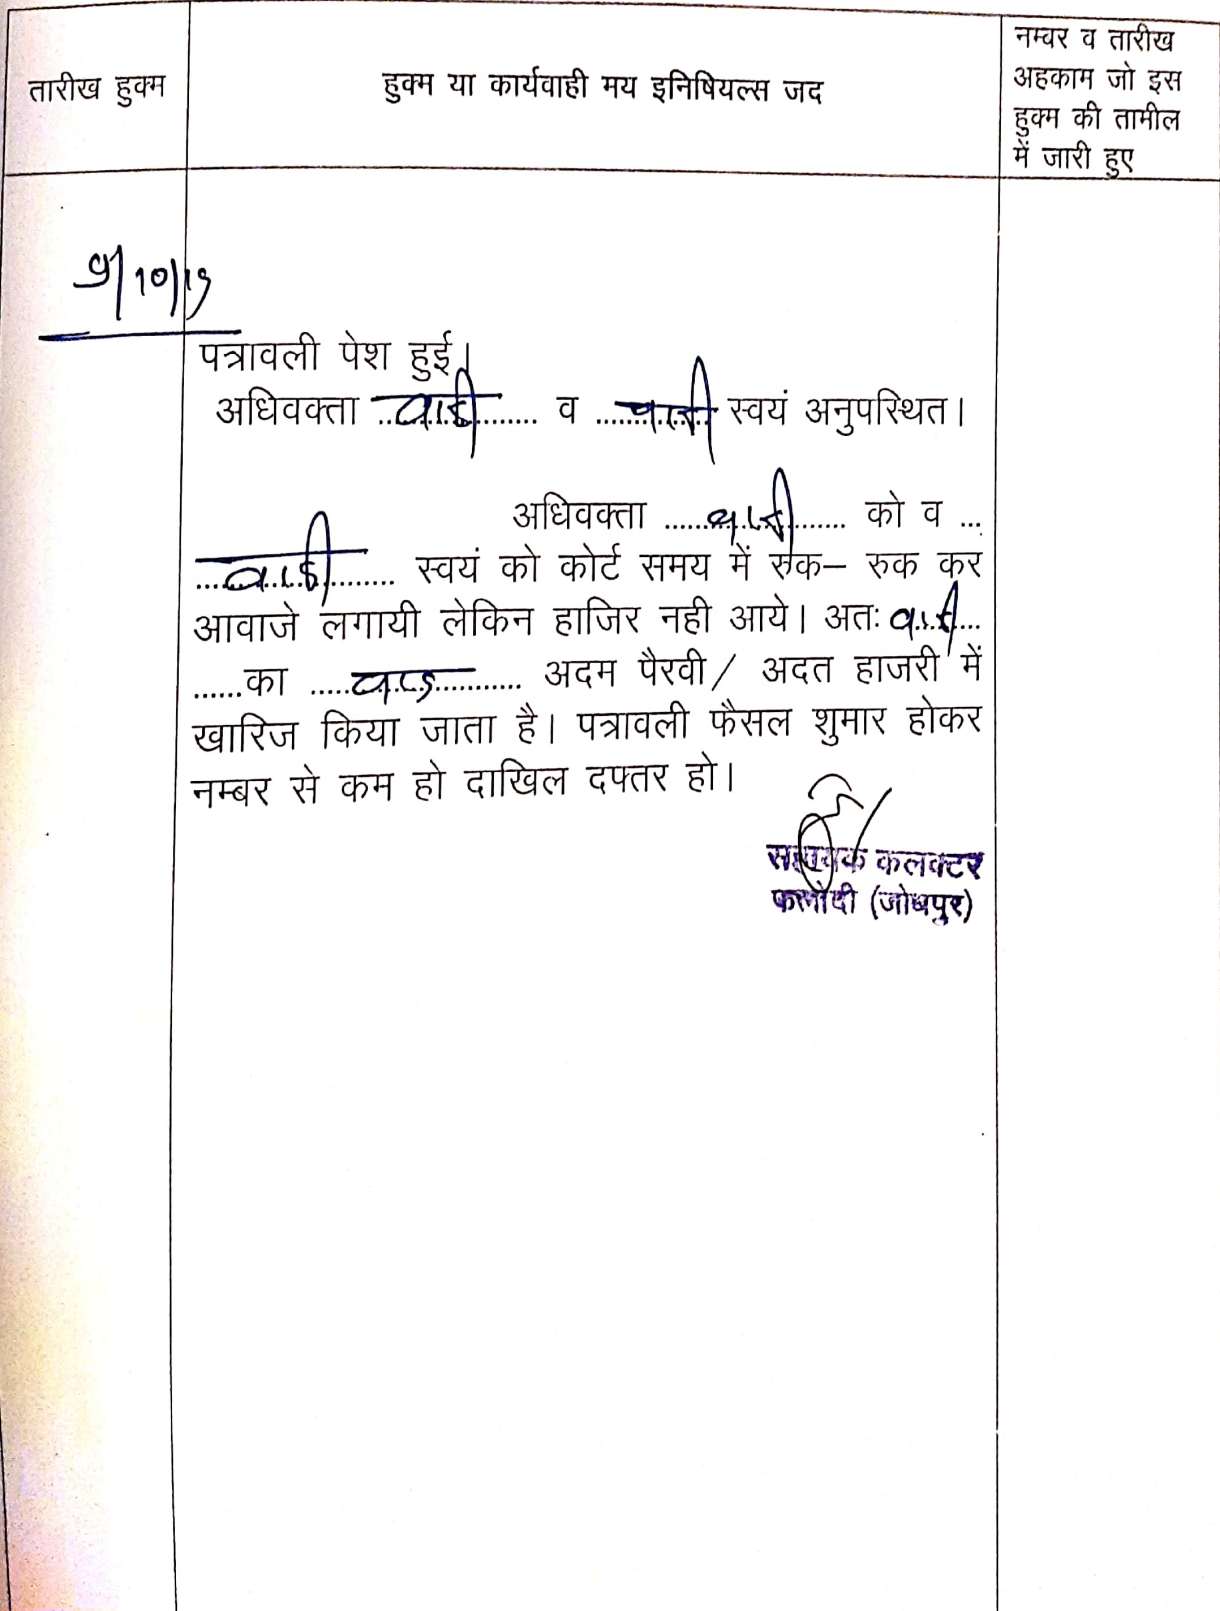 तारीख हुक्म
हुक्म या कार्यवाही मय इनिषियल्स जद
नम्बर व तारीख
अहकाम जो इस
हुक्म की तामील
में जारी हुए
9/10/19
पत्रावली पेश हुई।
अधिवक्ता ..वादी.......... व ......वादी स्वयं अनुपस्थित।
अधिवक्ता ......वादी...... को व ...
...वादी....... स्वयं को कोर्ट समय में रुक– रुक कर
आवाजे लगायी लेकिन हाजिर नही आये। अतः वादी...
......का .....वाद.......... अदम पैरवी/ अदत हाजरी में
खारिज किया जाता है। पत्रावली फैसल शुमार होकर
नम्बर से कम हो दाखिल दफ्तर हो।
सहायक कलक्टर
फलोदी (जोधपुर)